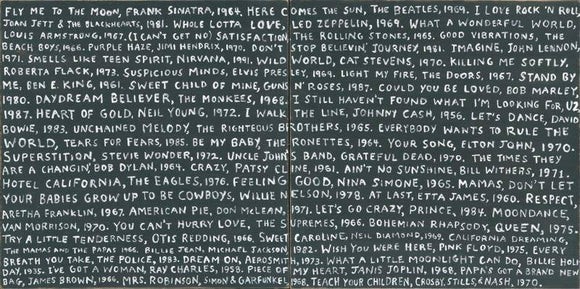 FLY ME TO THE MOON, FRANK SINATRA, 1964. HERE COMES THE SUN, THE BEATLES, 1969. I LOVE ROCK 'N ROLL,
JOAN JETT & THE BLACKHEARTS, 1981. WHOLE LOTTA LOVE, LED ZEPPELIN, 1969. WHAT A WONDERFUL WORLD,
LOUIS ARMSTRONG, 1967. (I CAN'T GET NO) SATISFACTION, THE ROLLING STONES, 1965. GOOD VIBRATIONS, THE
BEACH BOYS, 1966. PURPLE HAZE, JIMI HENDRIX, 1970. DON'T STOP BELIEVIN', JOURNEY, 1981. IMAGINE, JOHN LENNON,
1971. SMELLS LIKE TEEN SPIRIT, NIRVANA, 1991. WILD WORLD, CAT STEVENS, 1970. KILLING ME SOFTLY,
ROBERTA FLACK, 1973. SUSPICIOUS MINDS, ELVIS PRESLEY, 1969. LIGHT MY FIRE, THE DOORS, 1967. STAND BY
ME, BEN E. KING, 1961. SWEET CHILD OF MINE, GUNS N' ROSES, 1987. COULD YOU BE LOVED, BOB MARLEY,
1980. DAYDREAM BELIEVER, THE MONKEES, 1968. I STILL HAVEN'T FOUND WHAT I'M LOOKING FOR, U2,
1987. HEART OF GOLD, NEIL YOUNG, 1972. I WALK THE LINE, JOHNNY CASH, 1956. LET'S DANCE, DAVID
BOWIE, 1983. UNCHAINED MELODY, THE RIGHTEOUS BROTHERS, 1965. EVERYBODY WANTS TO RULE THE
WORLD, TEARS FOR FEARS, 1985. BE MY BABY, THE RONETTES, 1964. YOUR SONG, ELTON JOHN, 1970.
SUPERSTITION, STEVIE WONDER, 1972. UNCLE JOHN'S BAND, GRATEFUL DEAD, 1970. THE TIMES THEY
ARE A CHANGIN', BOB DYLAN, 1964. CRAZY, PATSY CLINE, 1961. AIN'T NO SUNSHINE, BILL WITHERS, 1971.
HOTEL CALIFORNIA, THE EAGLES, 1976. FEELING GOOD, NINA SIMONE, 1965. MAMAS, DON'T LET
YOUR BABIES GROW UP TO BE COWBOYS, WILLIE NELSON, 1978. AT LAST, ETTA JAMES, 1960. RESPECT,
ARETHA FRANKLIN, 1967. AMERICAN PIE, DON MCLEAN, 1971. LET'S GO CRAZY, PRINCE, 1984. MOONDANCE,
VAN MORRISON, 1970. YOU CAN'T HURRY LOVE, THE SUPREMES, 1966. BOHEMIAN RHAPSODY, QUEEN, 1975.
TRY A LITTLE TENDERNESS, OTIS REDDING, 1966. SWEET CAROLINE, NEIL DIAMOND, 1969. CALIFORNIA DREAMING,
THE MAMAS AND THE PAPAS 1965. BILLIE JEAN, MICHAEL JACKSON, 1982. WISH YOU WERE HERE, PINK FLOYD, 1975. EVERY
BREATH YOU TAKE, THE POLICE, 1983. DREAM ON, AEROSMITH, 1973. WHAT A LITTLE MOONLIGHT CAN DO, BILLIE HOLI
DAY, 1935. I'VE GOT A WOMAN, RAY CHARLES, 1958. PIECE OF MY HEART, JANIS JOPLIN, 1968. PAPA'S GOT A BRAND NEW
BAG, JAMES BROWN, 1966. MRS. ROBINSON, SIMON & GARFUNKEL, 1968, TEACH YOUR CHILDREN, CROSBY, STILLS, & NASH, 1970.